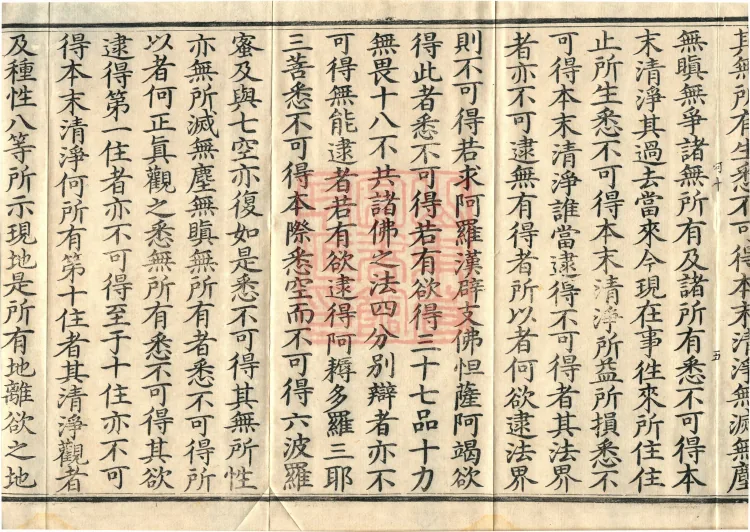 其無所有生悉不可得本末清淨無滅無塵
無瞋無爭諸無所有及諸所有悉不可得本
五
末清淨其過去當來今現在事往來所住住
止所生悉不可得本末清淨所益所損悉不
可得本末清淨誰當逮得不可得者其法界
者亦不可逮無有得者所以者何欲逮法界
則不可得若求阿羅漢辟支佛怛薩阿竭欲
得此者悉不可得若有欲得三十七品十力
無畏十八不共諸佛之法四分別辯者亦不
可得無能逮者若有欲逮得阿耨多羅三耶
三菩悉不可得本際悉空而不可得六波羅
蜜及與七空亦復如是悉不可得其無所性
亦無所滅無塵無瞋無所有者悉不可得所
以者何正真觀之悉無所有悉不可得其欲
逮得第一住者亦不可得至于十住亦不可
得本末清淨何所有第十住者其清淨觀者
及種性八等所示現地是所有地離欲之地